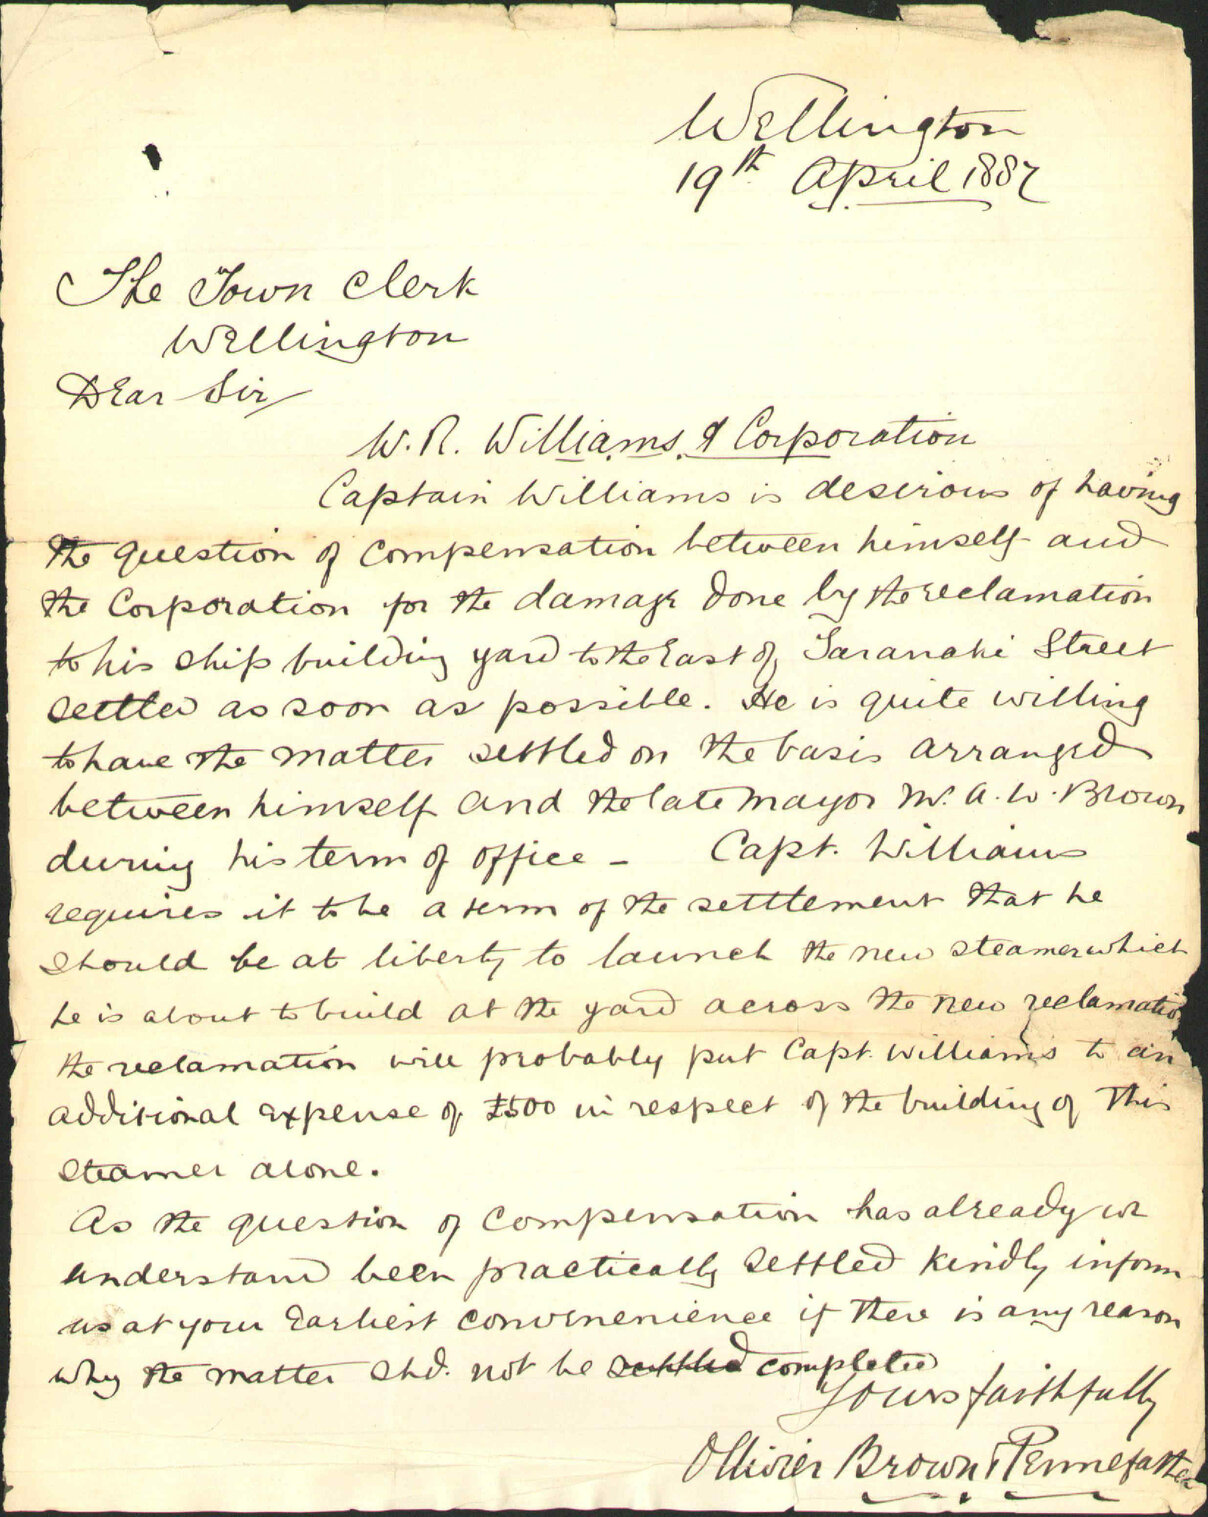 Wellington
19th April 1887
The Town Clerk
Wellington
Dear Sir
W. R. Williams & Corporation
Captain Williams is desirous of having
the question of compensation between himself and
the Corporation for the damage done by the reclamation
to his ship building yard to the East of Taranaki Street
settled as soon as possible. He is quite willing
to have the matter settled on the basis arranged
between himself and the late mayor Mr. A. W. Brown
during his term of office - Capt. Williams
requires it to be a term of the settlement that he
should be at liberty to launch the new steamer which
he is about to build at the yard across the new reclamatio
the reclamation will probably put Capt. Williams to an
additional expense of £500 in respect of the building of this
steamer alone.
As the question of compensation has already we
understand been practically settled kindly inform
us at your Earliest convenience if there is any reason
why the matter shd. not be settled completed
Yours faithfully
Ollivier Brown & Pennefather